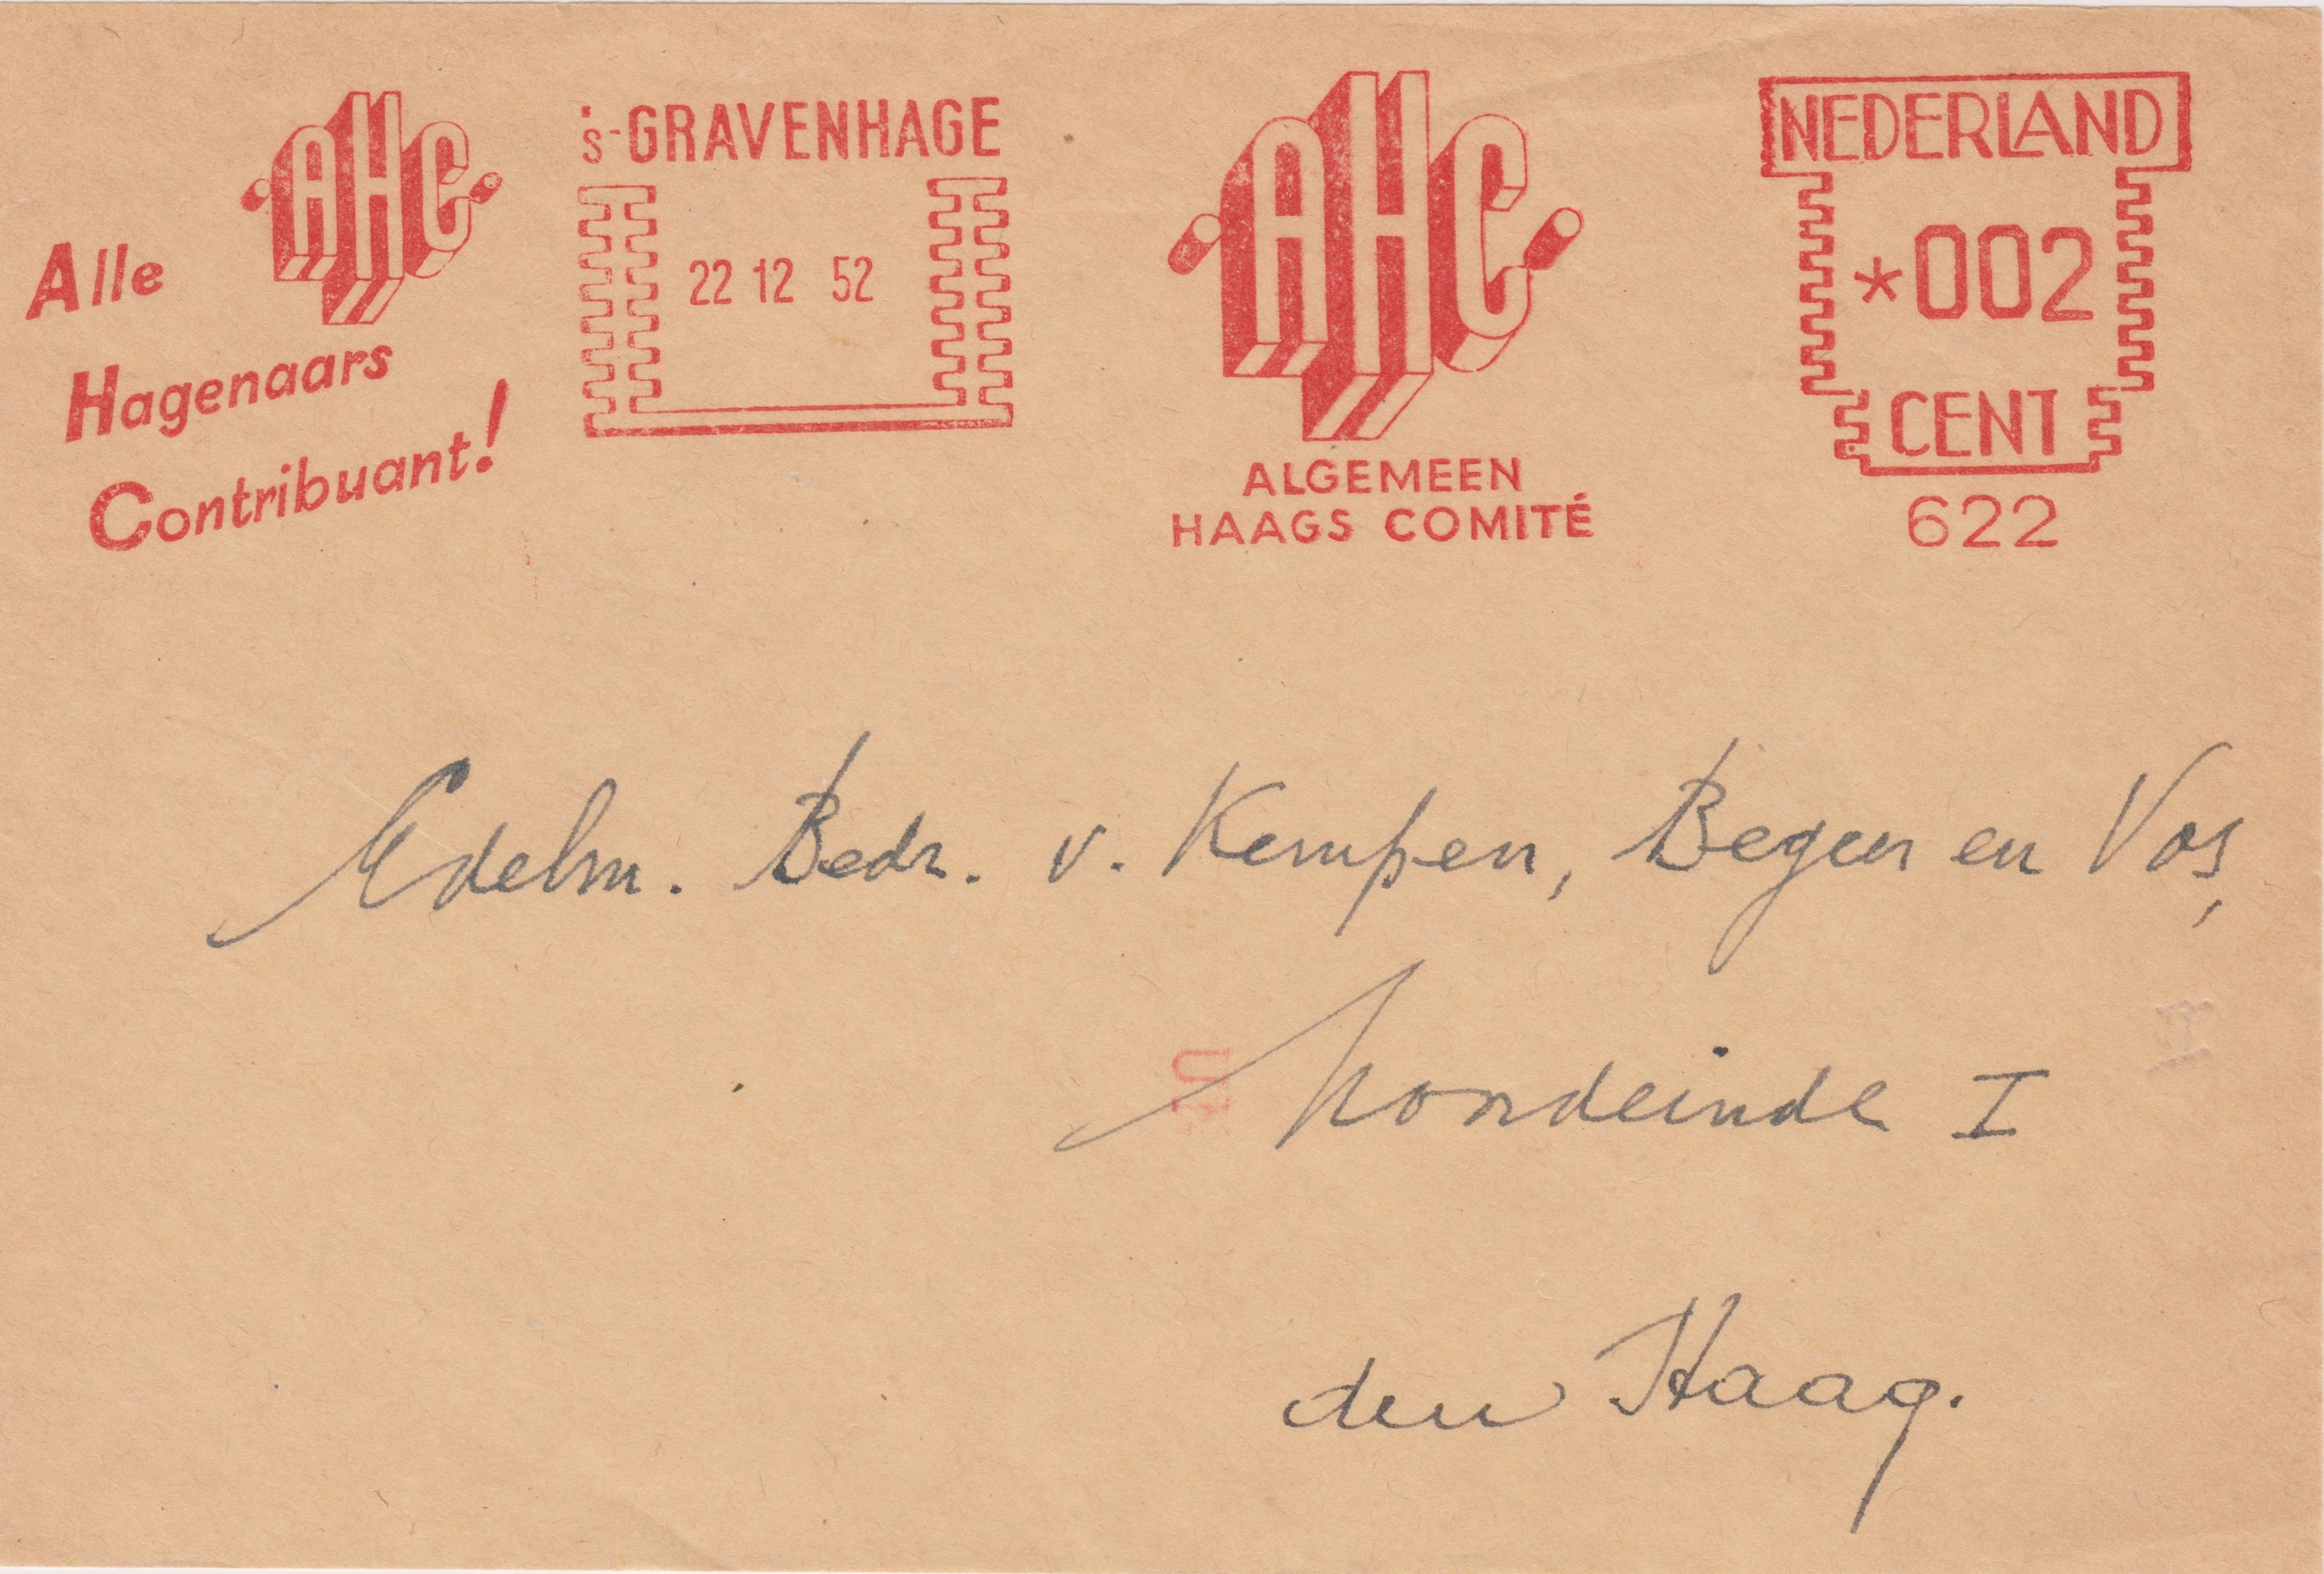 AHC
Alle
Hagenaars
Contribuant!
's-GRAVENHAGE
22 12 52
AHC
ALGEMEEN
HAAGS COMITÉ
NEDERLAND
*002
CENT
622
Edelm. Bedr. v. Kempen, Begeer en Vos,
Noordeinde I
den Haag.